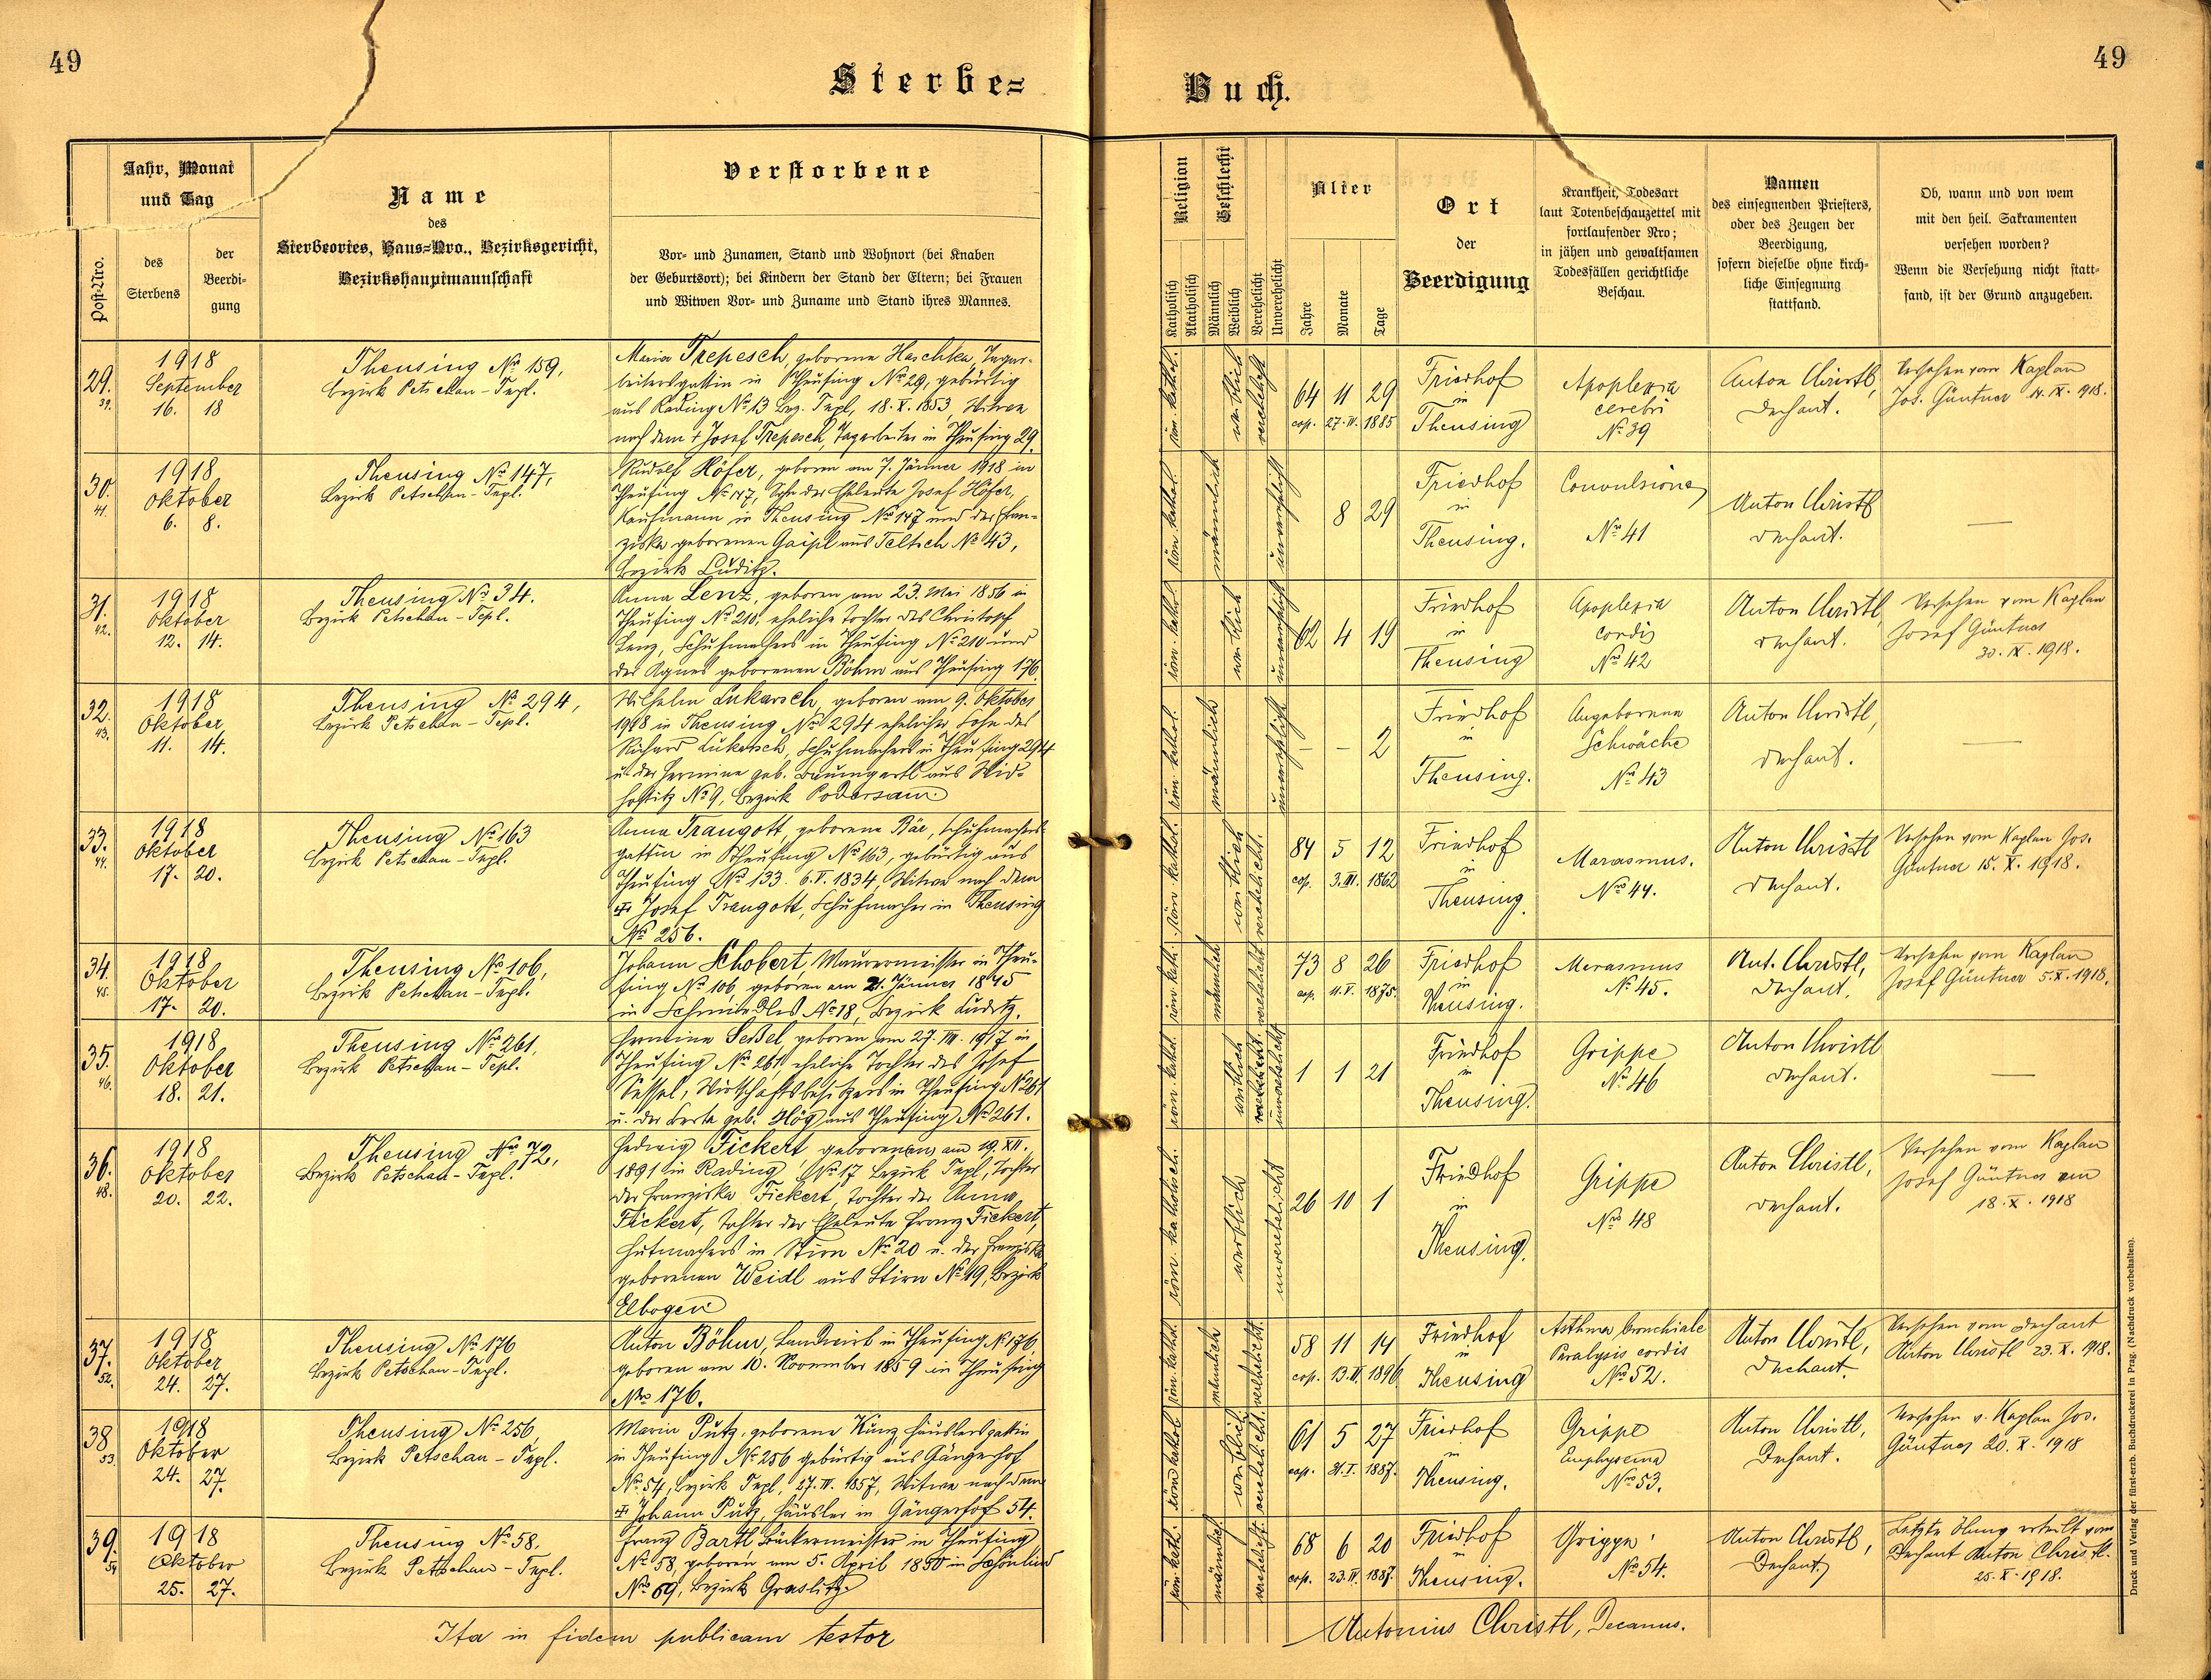 49
49
Sterbe=
Buch.
Jahr, Monat
und Tag
des
Sterbens
der
Beerdi=
gung
Post-Nro.
Name
des
Sterbeortes, Haus=Nro., Bezirksgericht,
Bezirkshauptmannschaft
Verstorbene
Vor= und Zunamen, Stand und Wohnort (bei Knaben
der Geburtsort); bei Kindern der Stand der Eltern; bei Frauen
und Witwen Vor= und Zuname und Stand ihres Mannes.
Religion
Katholisch
Akatholisch
Geschlecht
Männlich
Weiblich
Verehelicht
Unverehelicht
Alter
Jahre
Monate
Tage
Ort
der
Beerdigung
Krankheit, Todesart
laut Totenbeschauzettel mit
fortlaufender Nro;
in jähen und gewaltsamen
Todesfällen gerichtliche
Beschau.
Namen
des einsegnenden Priesters,
oder des Zeugen der
Beerdigung,
sofern dieselbe ohne kirch=
liche Einsegnung
stattfand.
Ob, wann und von wem
mit den heil. Sakramenten
versehen worden?
Wenn die Versehung nicht statt=
fand, ist der Grund anzugeben.
29.
39.
1918
September
16. 18
Theusing No 159,
Bezirk Petschau - Tepl.
Maria Trepesch, geborene Haschka, Tagar-
beitersgattin in Theusing No 29, gebürtig
aus Rading No 13 Bez. Tepl, 18. X. 1853, Witwe
nach dem + Josef Trepesch, Tagarbeiter in Theusing 29.
röm. kathol.
weiblich
verehelicht
64 11 29
cop. 27. IV. 1885
Friedhof
in
Theusing
Apoplexia
cerebri
No 39
Anton Christl,
Dechant.
Versehen vom Kaplan
Jos. Güntner 14. IX. 1918.
30.
41.
1918
Oktober
6. 8.
Theusing No 147,
Bezirk Petschau - Tepl.
Rudolf Höfer, geboren am 7. Jänner 1918 in
Theusing No 147, Sohn der Eheleute Josef Höfer,
Kaufmann in Theusing No 147 und der Fran-
ziska geborenen Gaipl aus Teltsch No 43,
Bezirk Luditz.
röm. kathol.
männlich
unverehelicht
8 29
Friedhof
in
Theusing.
Convulsiones
No 41
Anton Christl
Dechant.
—
31.
42.
1918
Oktober
12. 14.
Theusing No 34.
Bezirk Petschau - Tepl.
Anna Lenz, geboren am 23. Mai 1856 in
Theusing No 210, eheliche Tochter des Christoph
Lenz, Schuhmachers in Theusing No 210 und
der Agnes geborenen Böhm aus Theusing 176.
röm. kathol.
weiblich
unverehelicht
62 4 19
Friedhof
in
Theusing
Apoplexia
cordis
No 42
Anton Christl,
Dechant.
Versehen vom Kaplan
Josef Güntner
30. IX. 1918.
32.
43.
1918
Oktober
11. 14.
Theusing No 294,
Bezirk Petschau - Tepl.
Wilhelm Lukasch, geboren am 9. Oktober
1918 in Theusing No 294 ehelicher Sohn des
Richard Lukasch, Schuhmachers in Theusing 294
u. der Hermine geb. Baumgartl aus Wid-
hostitz No 9, Bezirk Podersam.
röm. kathol.
männlich
unverehelicht
- - 2
Friedhof
in
Theusing.
Angeborene
Schwäche
No 43
Anton Christl,
Dechant.
—
33.
44.
1918
Oktober
17. 20.
Theusing No 163
Bezirk Petschau - Tepl.
Anna Traugott, geborene Bär, Schuhmachers-
gattin in Theusing No 163, gebürtig aus
Theusing No 133. 6. V. 1834, Witwe nach dem
+ Josef Traugott, Schuhmacher in Theusing
No 256.
röm. kathol.
weiblich
verehelicht.
84 5 12
cop. 3. III. 1862
Friedhof
in
Theusing.
Marasmus.
No 44.
Anton Christl
Dechant.
Versehen vom Kaplan Jos.
Güntner 15. X. 1918.
34.
45.
1918
Oktober
17. 20.
Theusing No 106,
Bezirk Petschau - Tepl.
Johann Schobert, Maurermeister in Theu-
sing No 106, geboren am 21. Jänner 1845
in Schmiedles No 18, Bezirk Luditz.
röm. kath.
männlich
verehelicht
73 8 26
cop. 11. V. 1875.
Friedhof
in
Theusing.
Marasmus
No 45.
Ant. Christl,
Dechant.
Versehen vom Kaplan
Josef Güntner 5. X. 1918.
35.
46.
1918
Oktober
18. 21.
Theusing No 261,
Bezirk Petschau - Tepl.
Hermine Sessel, geboren am 27. VIII. 1917 in
Theusing No 261, eheliche Tochter des Josef
Sessel, Wirtschaftsbesitzers in Theusing No 261
u. der Berta geb. Hög aus Theusing No 261.
röm. kathol.
weiblich
unverehelicht
1 1 21
Friedhof
in
Theusing.
Grippe
No 46
Anton Christl
Dechant.
—
36.
48.
1918
Oktober
20. 22.
Theusing No 72,
Bezirk Petschau - Tepl.
Hedwig Fickert, geboren am 19. XII.
1891 in Rading No 17 Bezirk Tepl, Tochter
der Franziska Fickert, Tochter der Anna
Fickert, Tochter der Eheleute Franz Fickert,
Hutmachers in Stirn No 20 u. der Franziska
geborenen Weidl aus Stirn No 19, Bezirk
Elbogen
röm. katholisch
weiblich
unverehelicht
26 10 1
Friedhof
in
Theusing.
Grippe
No 48
Anton Christl,
Dechant.
Versehen vom Kaplan
Josef Güntner am
18. X. 1918
37.
52.
1918
Oktober
24. 27.
Theusing No 176
Bezirk Petschau - Tepl.
Anton Böhm, Landwirt in Theusing No 176,
geboren am 10. November 1859 in Theusing
No 176.
röm. kathol.
männlich
verehelicht.
58 11 14
cop. 13. II. 1896
Friedhof
in
Theusing
Asthma bronchiale
Paralysis cordis
No 52.
Anton Christl,
Dechant.
Versehen vom Dechant
Anton Christl 23. X. 1918.
38
53.
1918
Oktober
24. 27.
Theusing No 256,
Bezirk Petschau - Tepl.
Maria Putz, geborene Kunz, Häuslersgattin
in Theusing No 256 gebürtig aus Gängerhof
No 54, Bezirk Tepl, 27. IV. 1857, Witwe nach dem
+ Johann Putz, Häusler in Gängerhof 54.
röm. kathol.
weiblich
verehelicht.
61 5 27
cop. 31. I. 1887.
Friedhof
in
Theusing.
Grippe
Emphysema
No 53.
Anton Christl,
Dechant.
Versehen v. Kaplan Jos.
Güntner 20. X. 1918
39.
54
1918
Oktober
25. 27.
Theusing No 58,
Bezirk Petschau - Tepl.
Franz Bartl, Bäckermeister in Theusing
No 58, geboren am 5. April 1850 in Schönlind
No 69, Bezirk Graslitz.
röm. kath.
männlich
verehelicht
68 6 20
cop. 23. IV. 1887.
Friedhof
in
Theusing.
Grippe
No 54.
Anton Christl,
Dechant.
Letzte Ölung erteilt vom
Dechant Anton Christl.
25. X. 1918.
Ita in fidem publicam testor
Antonius Christl, Decanus.
Druck und Verlag der fürst-erzb. Buchdruckerei in Prag. (Nachdruck vorbehalten).